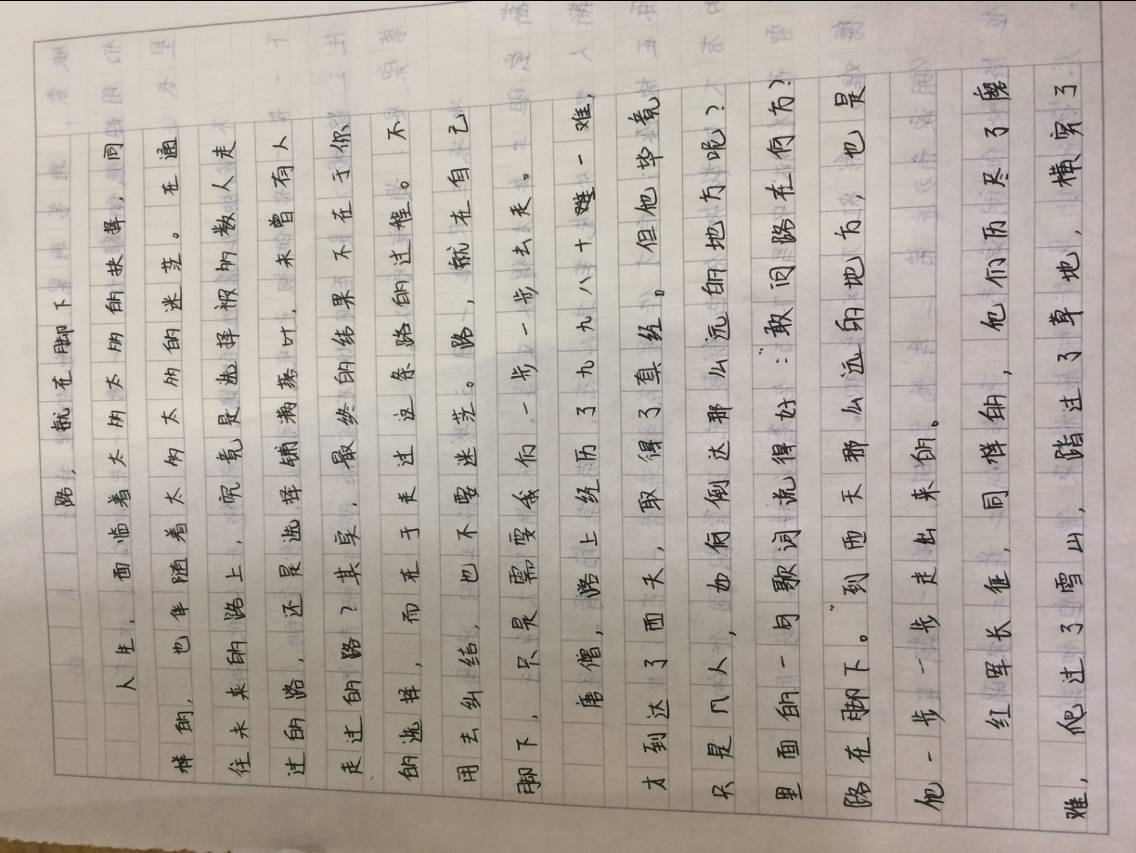 路，就在脚下
人生，面临着太多太多的抉择，同
样的，也伴随着太多太多的迷茫。在通
往未来的路上，究竟是选择被多数人走
过的路，还是选择铺满落叶，未曾有人
走过的路？其实，最终的结果不在于你
的选择，而在于走过这条路的过程。不
用去纠结，也不要迷茫。路，就在自己
脚下，只是需要我们一步一步去走。
唐僧，路上经历了九九八十难一难，
才到达了西天，取得了真经。但他毕竟
只是凡人，如何倒达那么远的地方呢？
里面的一句歌词流得好："敢问路在何方？
路在脚下。"到西天那么远的地方，也是
他一步一步走出来的。
红军长征，同样的，他们历尽了磨
难，爬过了雪山，踏过了草地，横穿了